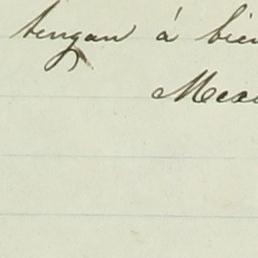 tengan á bien
Mexi